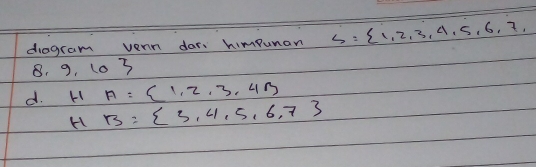 diagram venn dari himpunan S = {1, 2, 3, 4, 5, 6, 7,
8, 9, 10 }
d. H A = { 1, 2, 3, 4 }
H B = { 3, 4, 5, 6, 7 }